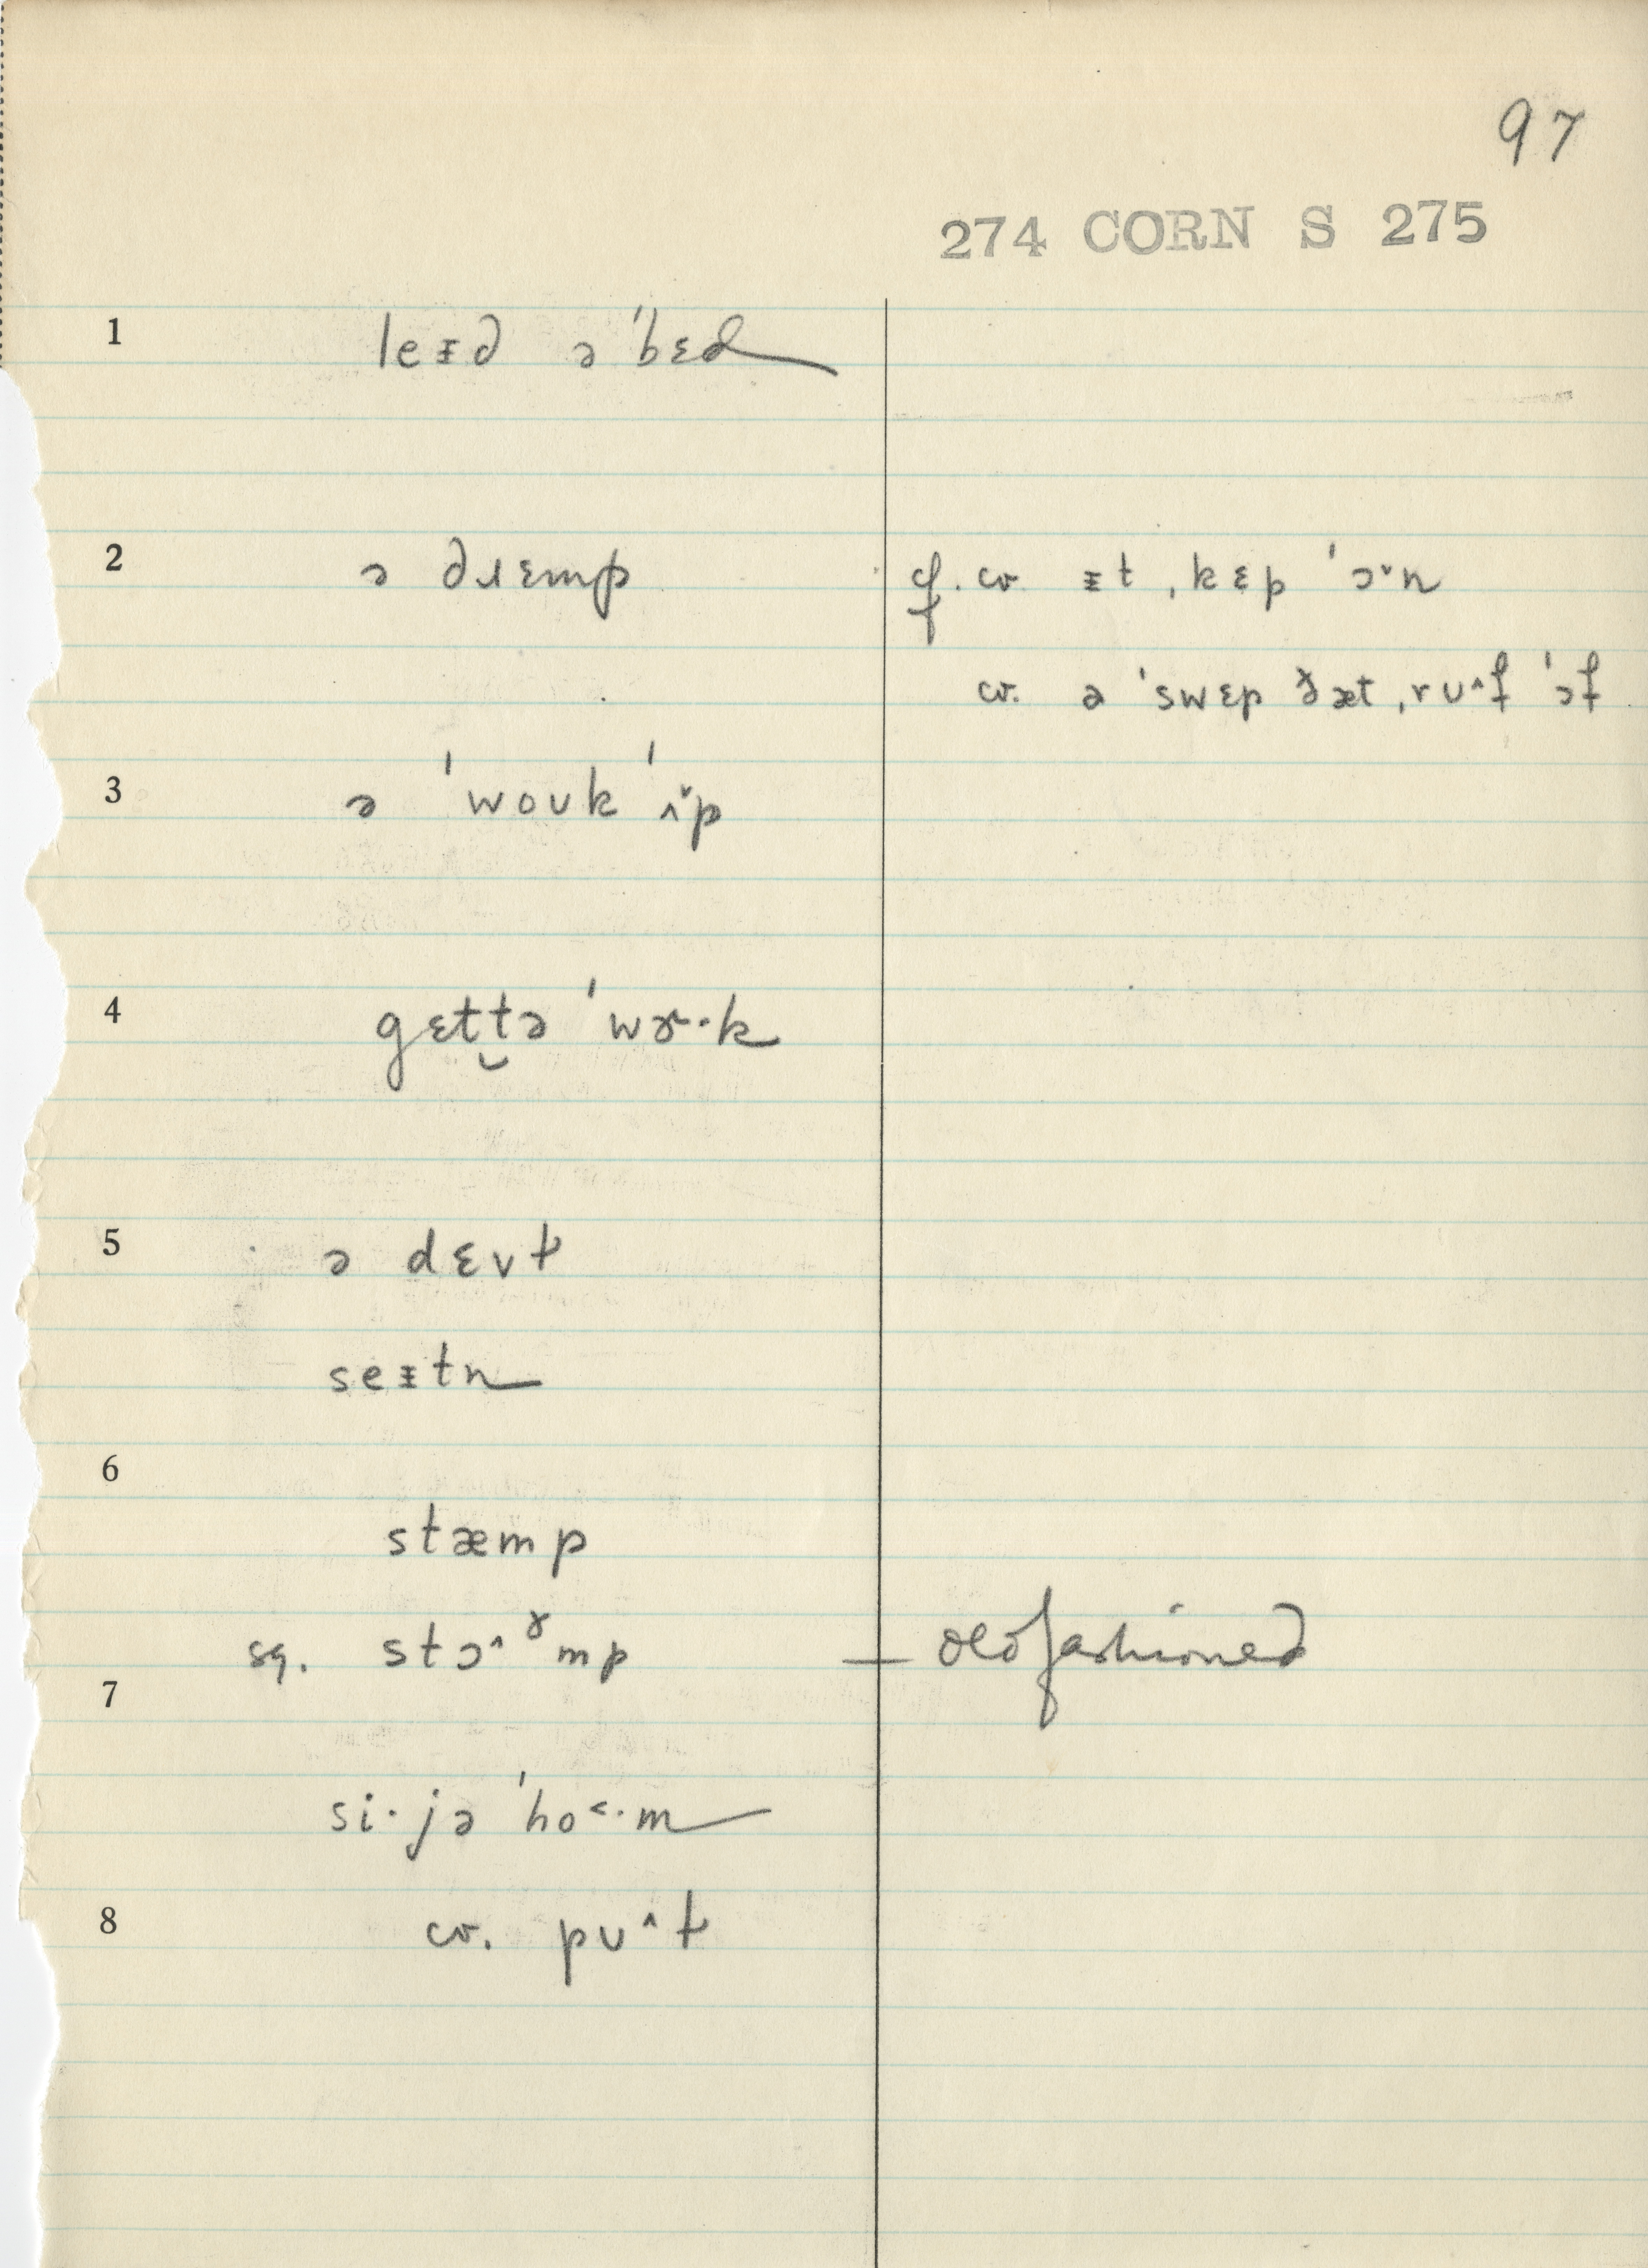 97
274 CORN S 275
1 leᵻd ə ˈbɛd
2 ə dɹɛmp cf. cv. ᵻt ˌkɛp ˈɔ˅n
cv. ə ˈswɛp ðæt ˌrʊ^f ˈɔf
3 ə ˈwoʊk ˈʌ˅p
4 gɛt̬tə ˈwɚ·k
5 ə dɛvt
seᵻtn
6
stæmp
sq. stɔ^ɤmp — old fashioned
7
si·jə ˈho˂·m
8 cv. pʊ^t